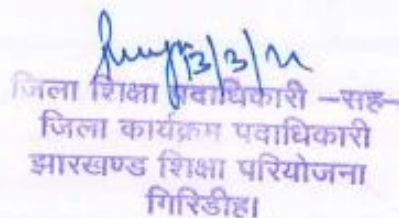 13/3/21
जिला शिक्षा पदाधिकारी –सह–
जिला कार्यक्रम पदाधिकारी
झारखण्ड शिक्षा परियोजना
गिरिडीह।